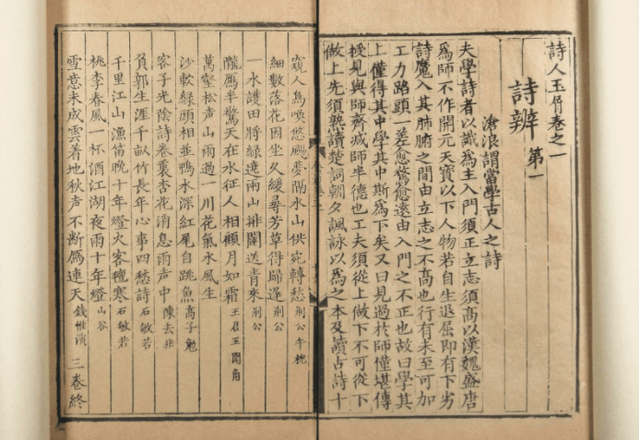 詩人玉屑卷之一
詩辨 第一
滄浪謂當學古人之詩
夫學詩者以識爲主入門須正立志須高以漢魏盛唐
爲師不作開元天寶以下人物若自生退屈即有下劣
詩魔入其肺腑之間由立志之不高也行有未至可加
工力路頭一差愈騖愈遠由入門之不正也故曰學其
上僅得其中學其中斯爲下矣又曰見過於師僅堪傳
授見與師齊減師半德也工夫須從上做下不可從下
做上先須熟讀楚詞朝夕諷詠以爲之本及讀古詩十
窺人鳥喚悠颺夢隔水山供宛轉愁 荆公午枕
細數落花因坐久緩尋芳草得歸遲 荆公
一水護田將綠遶兩山排闥送青來 荆公
隴鴈半驚天在水征人相顧月如霜 王君玉聞角
萬壑松聲山雨過一川花氣水風生
沙軟綠頭相並鴨水深紅尾自跳魚 高子勉
客子光陰詩卷裏杏花消息雨声中 陳去非
負郭生涯千畝竹長年心事四愁詩 石敏若
千里江山漁笛晚十年燈火客氊寒 石敏若
桃李春風一杯酒江湖夜雨十年燈 山谷
雪意未成雲著地秋声不断鴈連天 錢惟演
三卷終